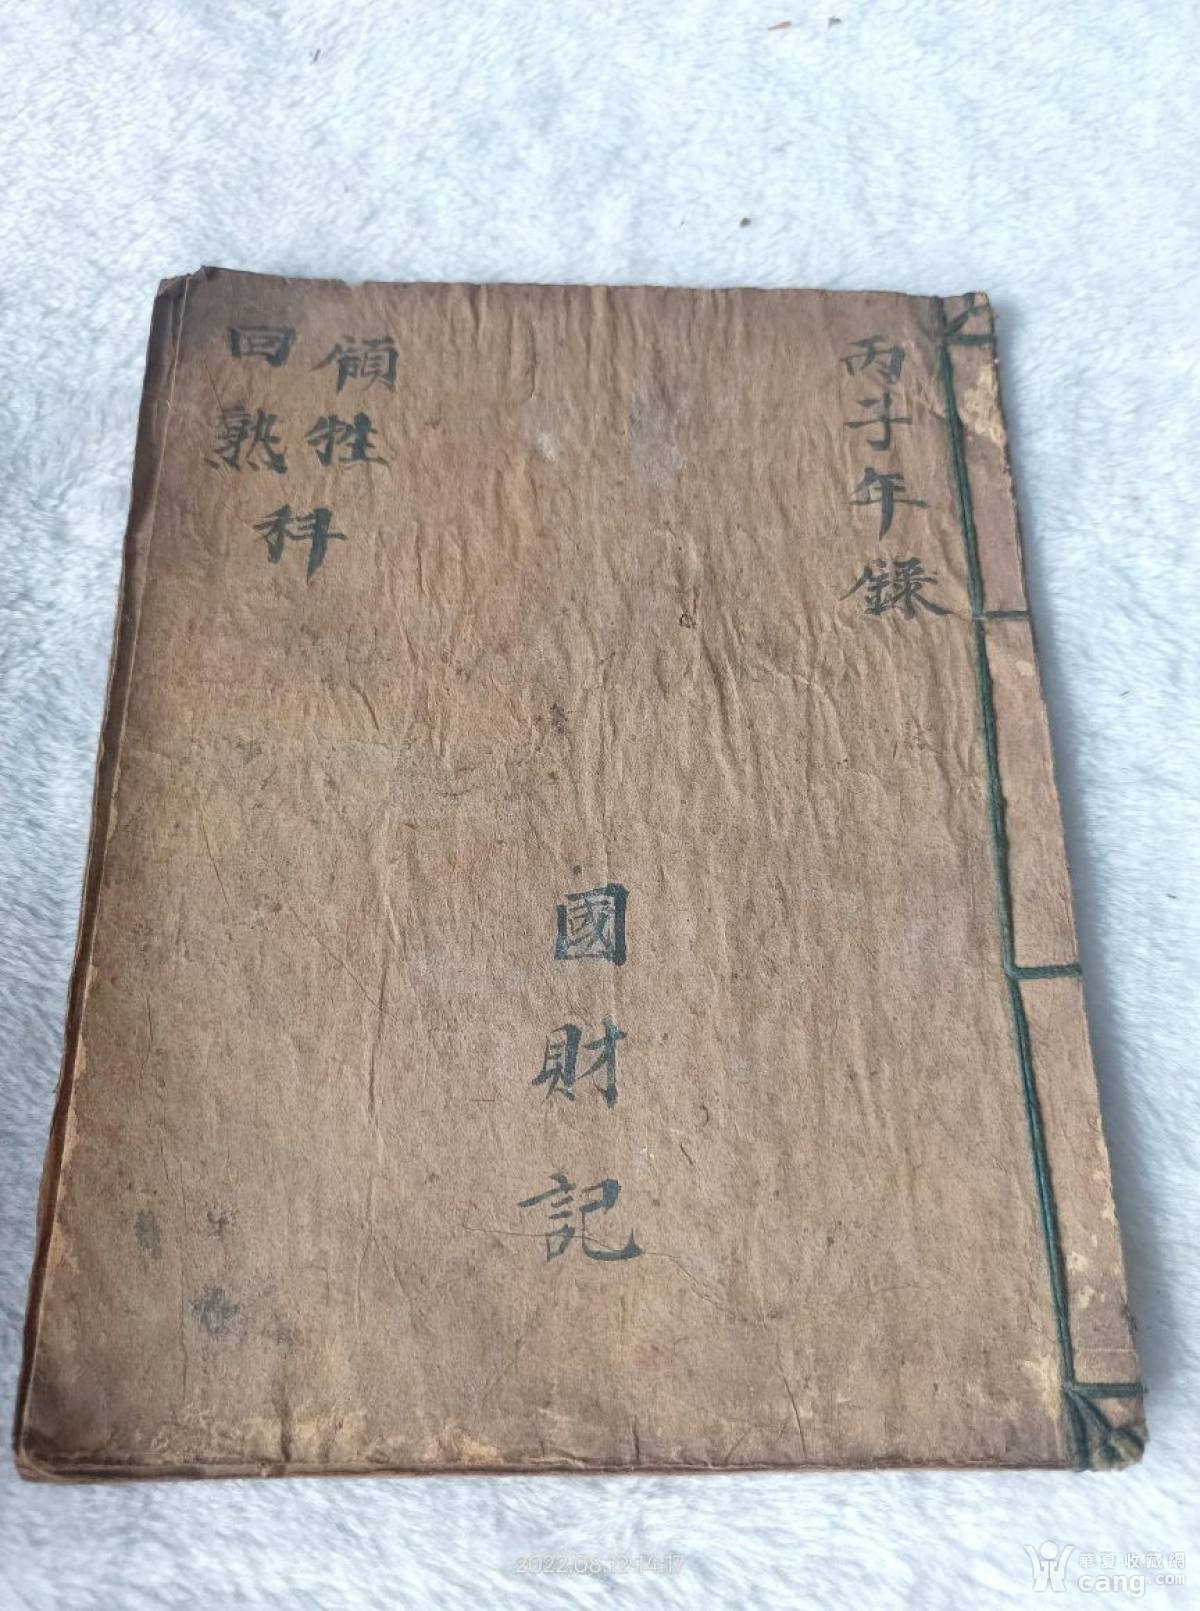 丙子年錄
領牲
回熟
科
國財記
2022.08.12 14:17
華夏收藏網
cang.com